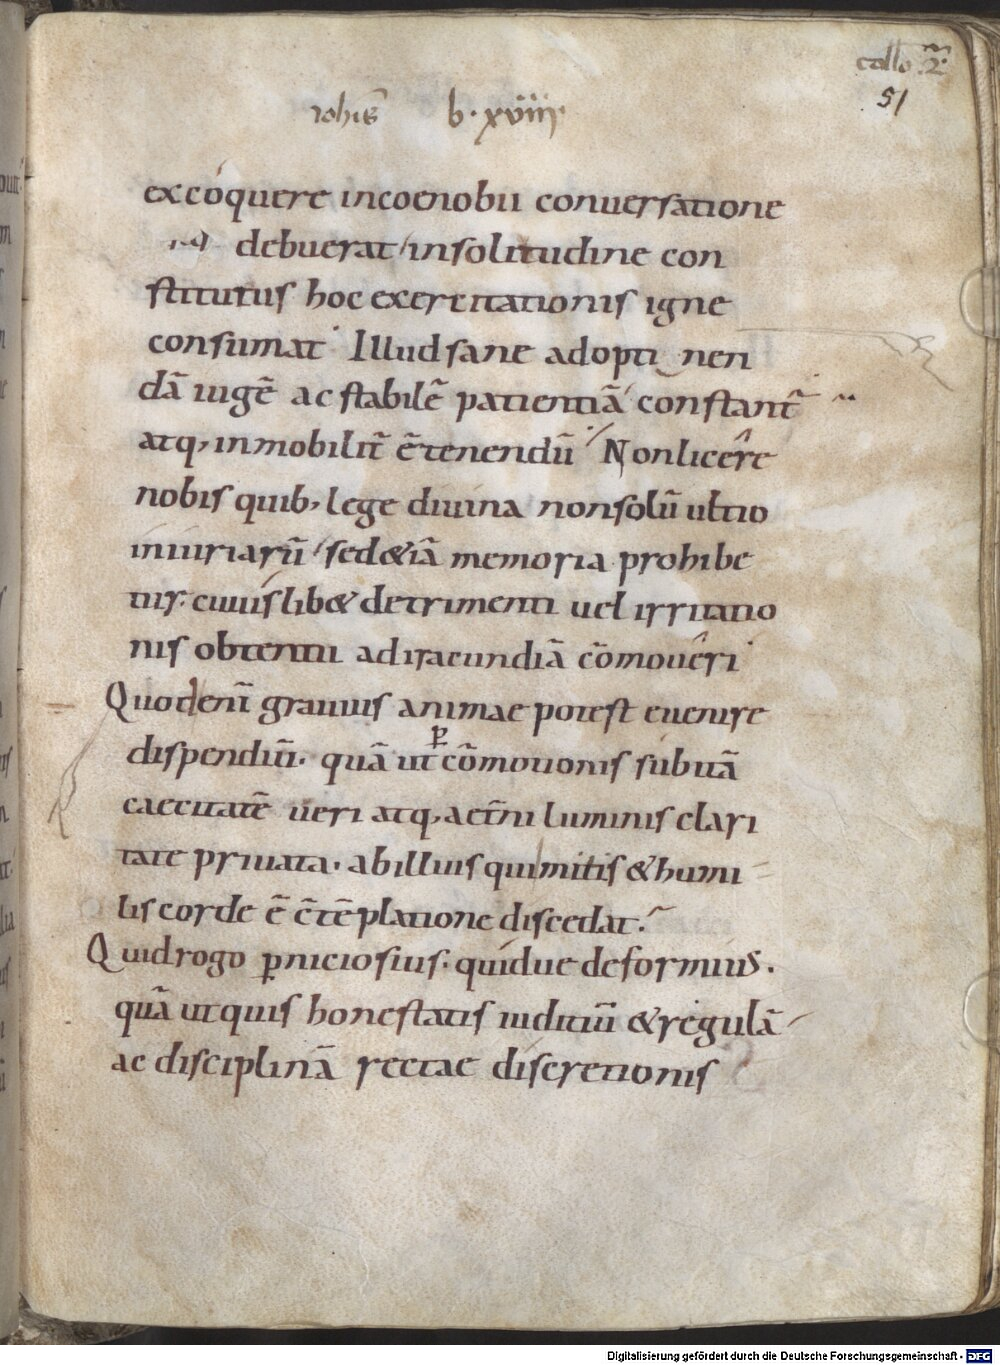 collo 2
51
iohis̄ b. xviiii.
excoquere incoenobii conuersatione
debuerat insolitudine con
stitutus hoc exercitationis igne
consumat Illud sane adopti nen
dā iugē ac stabilē patientiā constant̄
atq; inmobilit̄ ē tenendū Non licere
nobis quib; lege diuina non solū ultio
iniuriarū sed &iā memoria prohibe
tur. cuiuslib& detrimenti uel irritatio
nis obtentu ad iracundiā cōmoueri
Quod enī grauius animae potest euenire
dispendiū. quā ut ꝑ cōmotionis subitā
caecitatē ueri atq; aet̄ni luminis clari
tate priuata. ab illius qui mitis & humi
lis corde ē c̄tēplatione discedat.
Quid rogo ꝑniciosius. quidue deformius.
quā ut quis honestatis iuditiū & regulā
ac disciplinā rectae discretionis
Digitalisierung gefördert durch die Deutsche Forschungsgemeinschaft - DFG